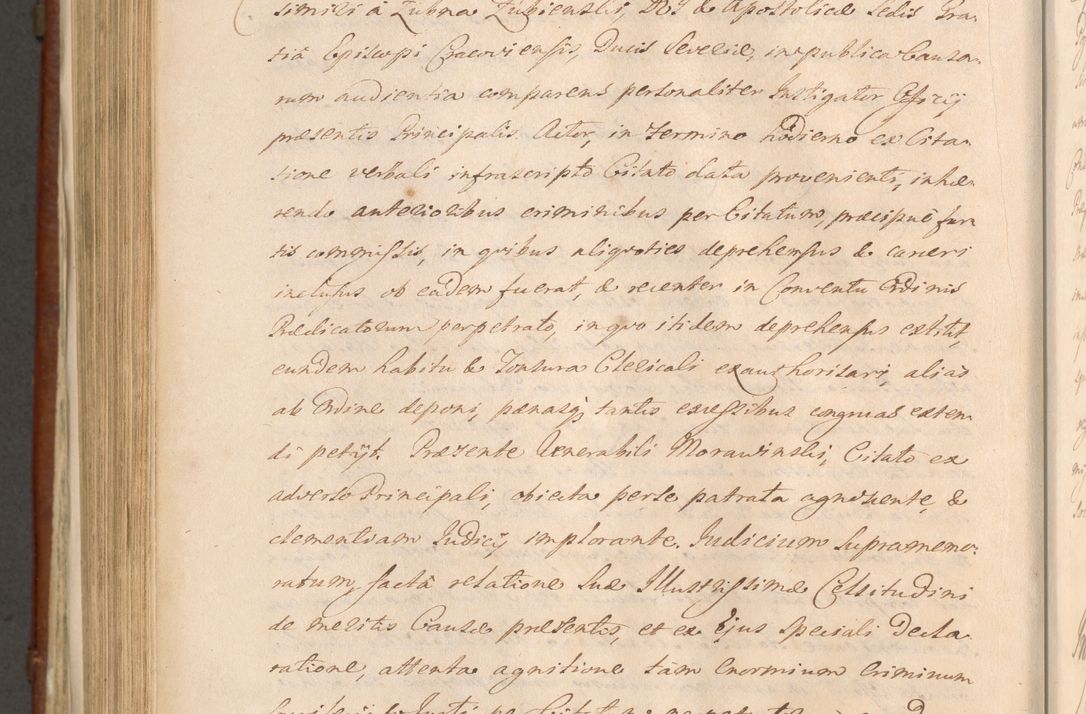 simiri à Zubna Zubienski, DEI & Apostolicæ Sedis Gra-
tiâ Episcopi Cracoviensis, Ducis Severiæ, in publica Causa-
rum audientia comparens personaliter Instigator Officij
præsentis Principalis Actor, in termino hodierno ex Cita-
tione verbali infrascripto Citato data provenienti, inhæ-
rendo anterioribus criminibus per Citatum, præcipuè fur-
tis commissis, in quibus aliquoties deprehensus & carceri
inclusus ob eadem fuerat, & recenter in Conventu Ordinis
Prædicatorum perpetrato, in quo itidem deprehensus extitit,
eundem habitu & Tonsura Clericali exauthorisari, alias
ab Ordine deponi, pænasq; tantis excessibus congruas exten-
di petijt. Præsente Venerabili Morawinski, Citato ex
adverso Principali, obiecta per se patrata agnoscente, &
clementiam Judicij implorante. Judicium supramemo-
ratum, factâ relatione Suæ Illustrissimæ Celsitudini
de meritis Causæ præsentis, et ex Ejus speciali Decla-
ratione, attenta agnitione tàm enormium Criminum